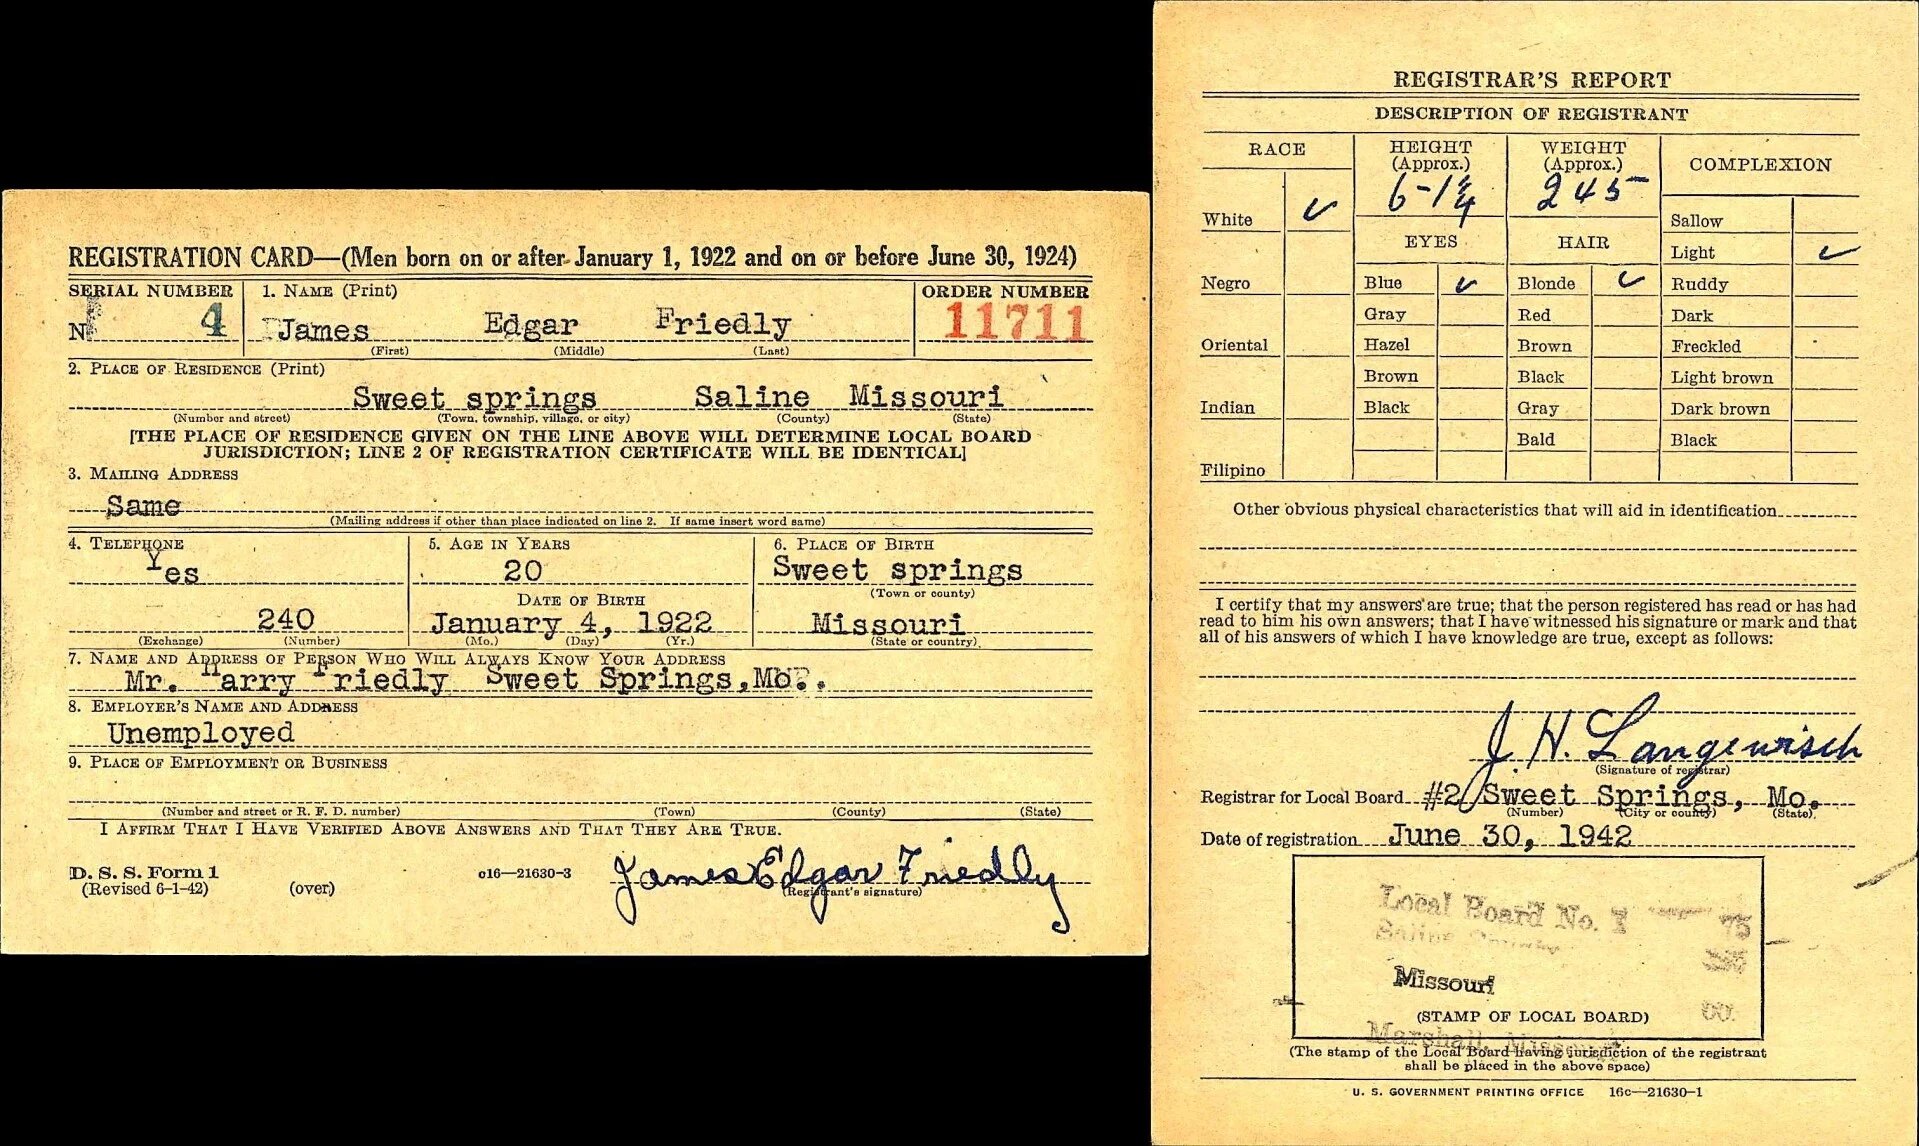 REGISTRATION CARD—(Men born on or after January 1, 1922 and on or before June 30, 1924)
SERIAL NUMBER 1. NAME (Print) ORDER NUMBER
N 4 James Edgar Friedly 11711
(First) (Middle) (Last)
2. PLACE OF RESIDENCE (Print)
Sweet springs Saline Missouri
(Number and street) (Town, township, village, or city) (County) (State)
[THE PLACE OF RESIDENCE GIVEN ON THE LINE ABOVE WILL DETERMINE LOCAL BOARD
JURISDICTION; LINE 2 OF REGISTRATION CERTIFICATE WILL BE IDENTICAL]
3. MAILING ADDRESS
Same
(Mailing address if other than place indicated on line 2. If same insert word same)
4. TELEPHONE 5. AGE IN YEARS 6. PLACE OF BIRTH
Yes 20 Sweet springs
DATE OF BIRTH (Town or county)
240 January 4, 1922 Missouri
(Exchange) (Number) (Mo.) (Day) (Yr.) (State or country)
7. NAME AND ADDRESS OF PERSON WHO WILL ALWAYS KNOW YOUR ADDRESS
Mr. Harry Friedly Sweet Springs, Mo.
8. EMPLOYER'S NAME AND ADDRESS
Unemployed
9. PLACE OF EMPLOYMENT OR BUSINESS
(Number and street or R. F. D. number) (Town) (County) (State)
I AFFIRM THAT I HAVE VERIFIED ABOVE ANSWERS AND THAT THEY ARE TRUE.
D. S. S. Form 1 c16—21630-3 James Edgar Friedly
(Revised 6-1-42) (over) (Registrant's signature)
REGISTRAR'S REPORT
DESCRIPTION OF REGISTRANT
RACE HEIGHT (Approx.) WEIGHT (Approx.) COMPLEXION
6-1¼ 245
White ✓ Sallow
EYES HAIR Light ✓
Negro Blue ✓ Blonde ✓ Ruddy
Gray Red Dark
Oriental Hazel Brown Freckled
Brown Black Light brown
Indian Black Gray Dark brown
Bald Black
Filipino
Other obvious physical characteristics that will aid in identification
I certify that my answers are true; that the person registered has read or has had
read to him his own answers; that I have witnessed his signature or mark and that
all of his answers of which I have knowledge are true, except as follows:
J. H. Langewisch
(Signature of registrar)
Registrar for Local Board #2 Sweet Springs, Mo.
(Number) (City or county) (State)
Date of registration June 30, 1942
Local Board No. 1 75
Saline County
Missouri
(STAMP OF LOCAL BOARD)
Marshall, Missouri
(The stamp of the Local Board having jurisdiction of the registrant
shall be placed in the above space)
U. S. GOVERNMENT PRINTING OFFICE 16c—21630-1